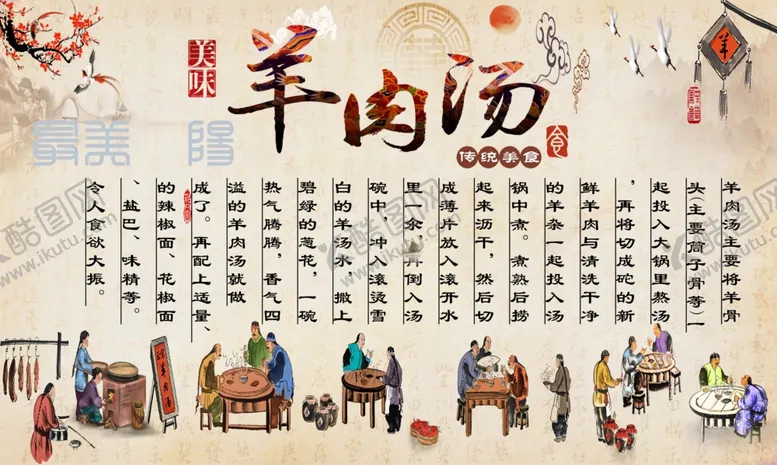 美味
羊肉汤
食
传统美食
羊
最美 陽
羊肉汤主要将羊骨
头(主要筒子骨等)一
起投入大锅里熬汤
,再将切成砣的新
鲜羊肉与清洗干净
的羊杂一起投入汤
锅中煮。煮熟后捞
起来沥干,然后切
成薄片放入滚开水
里一余,再倒入汤
碗中,冲入滚烫雪
白的羊汤水,撒上
碧绿的葱花,一碗
热气腾腾,香气四
溢的羊肉汤就做
成了。再配上适量、
的辣椒面、花椒面
、盐巴、味精等。
令人食欲大振。
羊肉汤
酷图网
www.ikutu.com